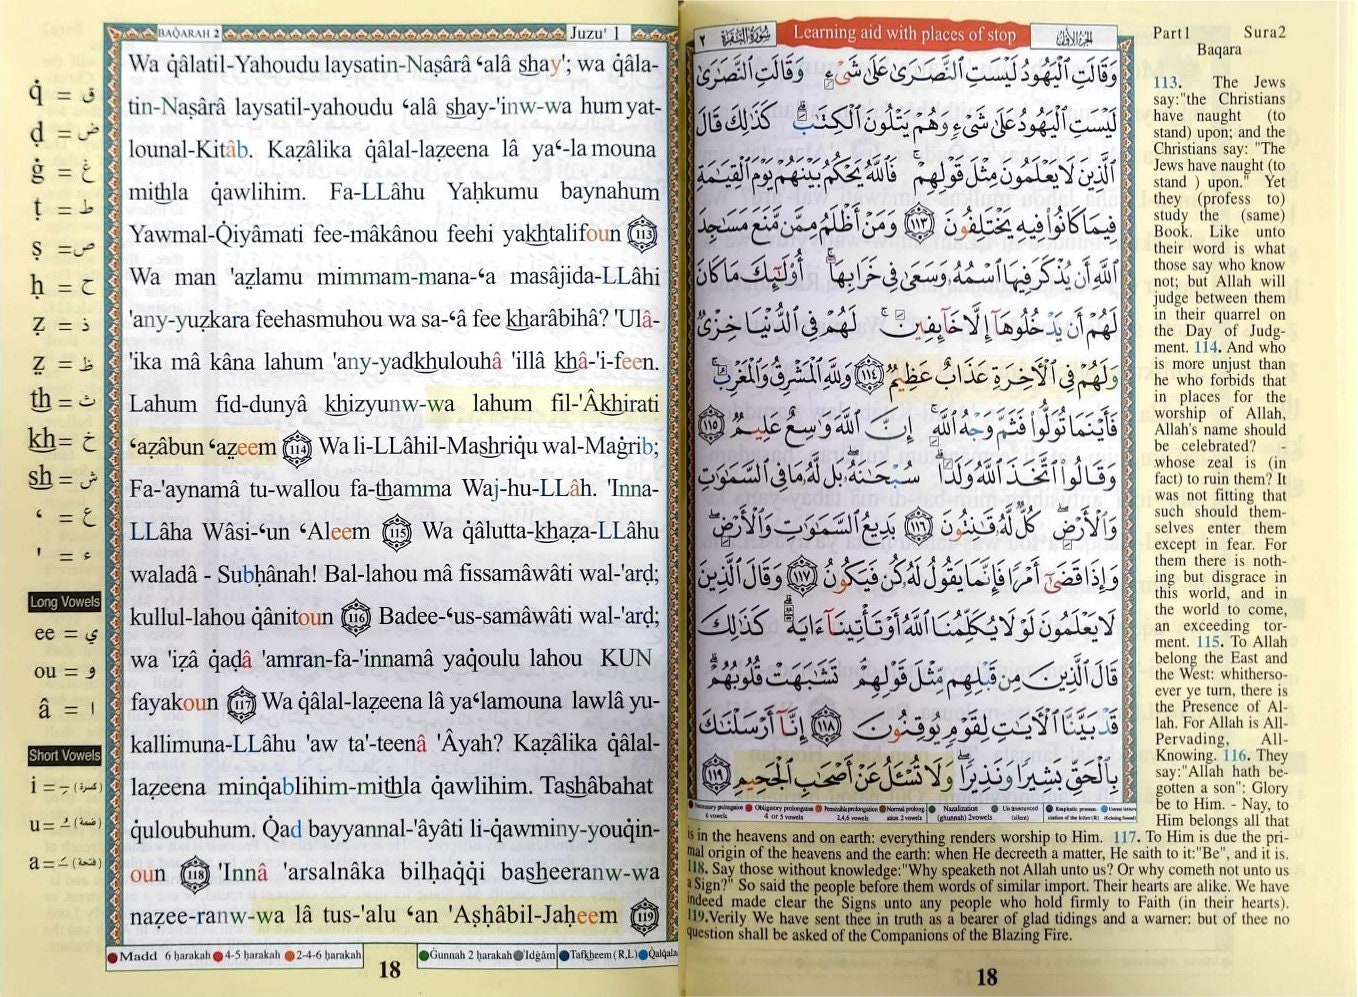 BAQARAH 2
Juzu' 1
Wa q̇âlatil-Yahoudu laysatin-Naṣârâ ʻalâ shay'; wa q̇âla-
tin-Naṣârâ laysatil-yahoudu ʻalâ shay-'inw-wa hum yat-
lounal-Kitâb. Kaz̤âlika q̇âlal-laz̤eena lâ yaʻ-lamouna
mithla q̇awlihim. Fa-LLâhu Yaḥkumu baynahum
Yawmal-Q̇iyâmati fee-mâkânou feehi yakhtalifoun 113
Wa man 'aẓlamu mimmam-mana-ʻa masâjida-LLâhi
'any-yuz̤kara feehasmuhou wa sa-ʻâ fee kharâbihâ? 'Ulâ-
'ika mâ kâna lahum 'any-yadkhulouhâ 'illâ khâ-'i-feen.
Lahum fid-dunyâ khizyunw-wa lahum fil-'Âkhirati
ʻaz̤âbun ʻaẓeem 114 Wa li-LLâhil-Mashriq̇u wal-Maġrib;
Fa-'aynamâ tu-wallou fa-thamma Waj-hu-LLâh. 'Inna-
LLâha Wâsi-ʻun ʻAleem 115 Wa q̇âlutta-khaz̤a-LLâhu
waladâ - Subḥânah! Bal-lahou mâ fissamâwâti wal-'arḍ;
kullul-lahou q̇ânitoun 116 Badee-ʻus-samâwâti wal-'arḍ;
wa 'iz̤â q̇aḍâ 'amran-fa-'innamâ yaq̇oulu lahou KUN
fayakoun 117 Wa q̇âlal-laz̤eena lâ yaʻlamouna lawlâ yu-
kallimuna-LLâhu 'aw ta'-teenâ 'Âyah? Kaz̤âlika q̇âlal-
laz̤eena minq̇ablihim-mithla q̇awlihim. Tashâbahat
q̇uloubuhum. Q̇ad bayyannal-'âyâti li-q̇awminy-youq̇in-
oun 118 'Innâ 'arsalnâka bilḥaq̇q̇i basheeranw-wa
naz̤ee-ranw-wa lâ tus-'alu ʻan 'Aṣḥâbil-Jaḥeem 119
q̇ = ق
ḍ = ض
ġ = غ
ṭ = ط
ṣ = ص
ḥ = ح
z̤ = ذ
ẓ = ظ
th = ث
kh = خ
sh = ش
ʻ = ع
' = ء
Long Vowels
ee = ي
ou = و
â = ا
Short Vowels
i = ـِ (كسرة)
u = ـُ (ضمة)
a = ـَ (فتحة)
Madd 6 ḥarakah 4-5 ḥarakah 2-4-6 ḥarakah
Ġunnah 2 ḥarakah 'Idġâm Tafkheem (R,L) Q̇alq̇ala
18
٢ سُورَةُ البَقَرَة
Learning aid with places of stop
الجزء الأول
وَقَالَتِ ٱلْيَهُودُ لَيْسَتِ ٱلنَّصَٰرَىٰ عَلَىٰ شَىْءٍ وَقَالَتِ ٱلنَّصَٰرَىٰ
لَيْسَتِ ٱلْيَهُودُ عَلَىٰ شَىْءٍ وَهُمْ يَتْلُونَ ٱلْكِتَٰبَ كَذَٰلِكَ قَالَ
ٱلَّذِينَ لَا يَعْلَمُونَ مِثْلَ قَوْلِهِمْ فَٱللَّهُ يَحْكُمُ بَيْنَهُمْ يَوْمَ ٱلْقِيَٰمَةِ
فِيمَا كَانُوا۟ فِيهِ يَخْتَلِفُونَ ١١٣ وَمَنْ أَظْلَمُ مِمَّن مَّنَعَ مَسَٰجِدَ
ٱللَّهِ أَن يُذْكَرَ فِيهَا ٱسْمُهُۥ وَسَعَىٰ فِى خَرَابِهَآ أُو۟لَٰٓئِكَ مَا كَانَ
لَهُمْ أَن يَدْخُلُوهَآ إِلَّا خَآئِفِينَ لَهُمْ فِى ٱلدُّنْيَا خِزْىٌ
وَلَهُمْ فِى ٱلْءَاخِرَةِ عَذَابٌ عَظِيمٌ ١١٤ وَلِلَّهِ ٱلْمَشْرِقُ وَٱلْمَغْرِبُ
فَأَيْنَمَا تُوَلُّوا۟ فَثَمَّ وَجْهُ ٱللَّهِ إِنَّ ٱللَّهَ وَٰسِعٌ عَلِيمٌ ١١٥
وَقَالُوا۟ ٱتَّخَذَ ٱللَّهُ وَلَدًا سُبْحَٰنَهُۥ بَل لَّهُۥ مَا فِى ٱلسَّمَٰوَٰتِ
وَٱلْأَرْضِ كُلٌّ لَّهُۥ قَٰنِتُونَ ١١٦ بَدِيعُ ٱلسَّمَٰوَٰتِ وَٱلْأَرْضِ
وَإِذَا قَضَىٰٓ أَمْرًا فَإِنَّمَا يَقُولُ لَهُۥ كُن فَيَكُونُ ١١٧ وَقَالَ ٱلَّذِينَ
لَا يَعْلَمُونَ لَوْلَا يُكَلِّمُنَا ٱللَّهُ أَوْ تَأْتِينَآ ءَايَةٌ كَذَٰلِكَ
قَالَ ٱلَّذِينَ مِن قَبْلِهِم مِّثْلَ قَوْلِهِمْ تَشَٰبَهَتْ قُلُوبُهُمْ
قَدْ بَيَّنَّا ٱلْءَايَٰتِ لِقَوْمٍ يُوقِنُونَ ١١٨ إِنَّآ أَرْسَلْنَٰكَ
بِٱلْحَقِّ بَشِيرًا وَنَذِيرًا وَلَا تُسْـَٔلُ عَنْ أَصْحَٰبِ ٱلْجَحِيمِ ١١٩
Necessary prolongation 6 vowels Obligatory prolongation 4 or 5 vowels Permissible prolongation 2,4,6 vowels Normal prolongation 2 vowels Nazalization (ghunnah) 2 vowels Un announced (silent)
Part1 Sura2
Baqara
113. The Jews
say:"the Christians
have naught (to
stand) upon; and the
Christians say: "The
Jews have naught (to
stand ) upon." Yet
they (profess to)
study the (same)
Book. Like unto
their word is what
those say who know
not; but Allah will
judge between them
in their quarrel on
the Day of Judg-
ment. 114. And who
is more unjust than
he who forbids that
in places for the
worship of Allah,
Allah's name should
be celebrated? -
whose zeal is (in
fact) to ruin them? It
was not fitting that
such should them-
selves enter them
except in fear. For
them there is noth-
ing but disgrace in
this world, and in
the world to come,
an exceeding tor-
ment. 115. To Allah
belong the East and
the West: whitherso-
ever ye turn, there is
the Presence of Al-
lah. For Allah is All-
Pervading, All-
Knowing. 116. They
say:"Allah hath be-
gotten a son": Glory
be to Him. - Nay, to
Him belongs all that
is in the heavens and on earth: everything renders worship to Him. 117. To Him is due the pri-
mal origin of the heavens and the earth: when He decreeth a matter, He saith to it:"Be", and it is.
118. Say those without knowledge:"Why speaketh not Allah unto us? Or why cometh not unto us
a Sign?" So said the people before them words of similar import. Their hearts are alike. We have
indeed made clear the Signs unto any people who hold firmly to Faith (in their hearts).
119.Verily We have sent thee in truth as a bearer of glad tidings and a warner: but of thee no
question shall be asked of the Companions of the Blazing Fire.
18